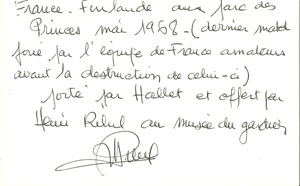 France. Finlande aux parc des
Princes mai 1968 - (dernier match
joué par l'équipe de France amateurs
avant la destruction de celui-ci)
porté par Hallet et offert par
Henri au musée du gardien